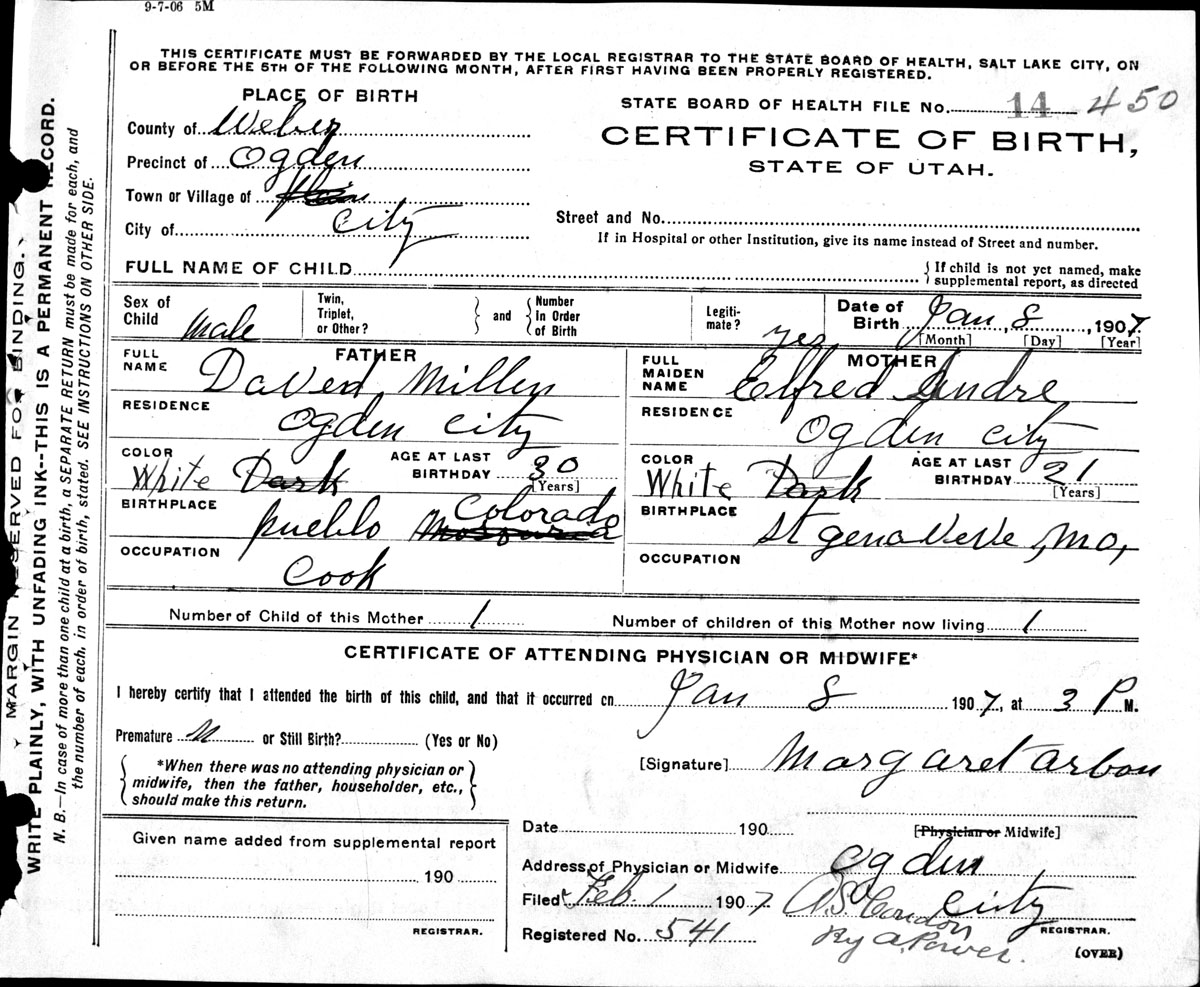 9-7-06 5M
THIS CERTIFICATE MUST BE FORWARDED BY THE LOCAL REGISTRAR TO THE STATE BOARD OF HEALTH, SALT LAKE CITY, ON
OR BEFORE THE 5TH OF THE FOLLOWING MONTH, AFTER FIRST HAVING BEEN PROPERLY REGISTERED.
PLACE OF BIRTH
STATE BOARD OF HEALTH FILE No. 14 450
County of Weber
CERTIFICATE OF BIRTH,
STATE OF UTAH.
Precinct of Ogden
Town or Village of
City of City
Street and No.
If in Hospital or other Institution, give its name instead of Street and number.
FULL NAME OF CHILD
{ If child is not yet named, make
supplemental report, as directed
Sex of Child Male
Twin, Triplet, or Other?
} and { Number In Order of Birth
Legiti-mate? yes
Date of Birth Jan 8, 1907.
[Month] [Day] [Year]
FATHER
FULL NAME Daved Miller
RESIDENCE Ogden City
COLOR White Dark
AGE AT LAST BIRTHDAY 30
[Years]
BIRTHPLACE pueblo Colorado
OCCUPATION Cook
MOTHER
FULL MAIDEN NAME Elfred Andre
RESIDENCE Ogden City
COLOR White Dark
AGE AT LAST BIRTHDAY 21
[Years]
BIRTHPLACE St genaVeVe, Mo,
OCCUPATION
Number of Child of this Mother 1
Number of children of this Mother now living 1
CERTIFICATE OF ATTENDING PHYSICIAN OR MIDWIFE*
I hereby certify that I attended the birth of this child, and that it occurred on Jan 8 1907, at 3 P M.
Premature or Still Birth? (Yes or No)
{ *When there was no attending physician or
midwife, then the father, householder, etc.,
should make this return. }
[Signature] Margaret Arbon
Date 190
[Physician or Midwife]
Given name added from supplemental report
190
REGISTRAR.
Address of Physician or Midwife Ogden City
Filed Feb. 1 1907 A.S. Condon
Registered No. 541 By A. Power.
REGISTRAR.
(OVER)
MARGIN RESERVED FOR BINDING.
WRITE PLAINLY, WITH UNFADING INK--THIS IS A PERMANENT RECORD.
N. B.—In case of more than one child at a birth, a SEPARATE RETURN must be made for each, and
the number of each, in order of birth, stated. SEE INSTRUCTIONS ON OTHER SIDE.